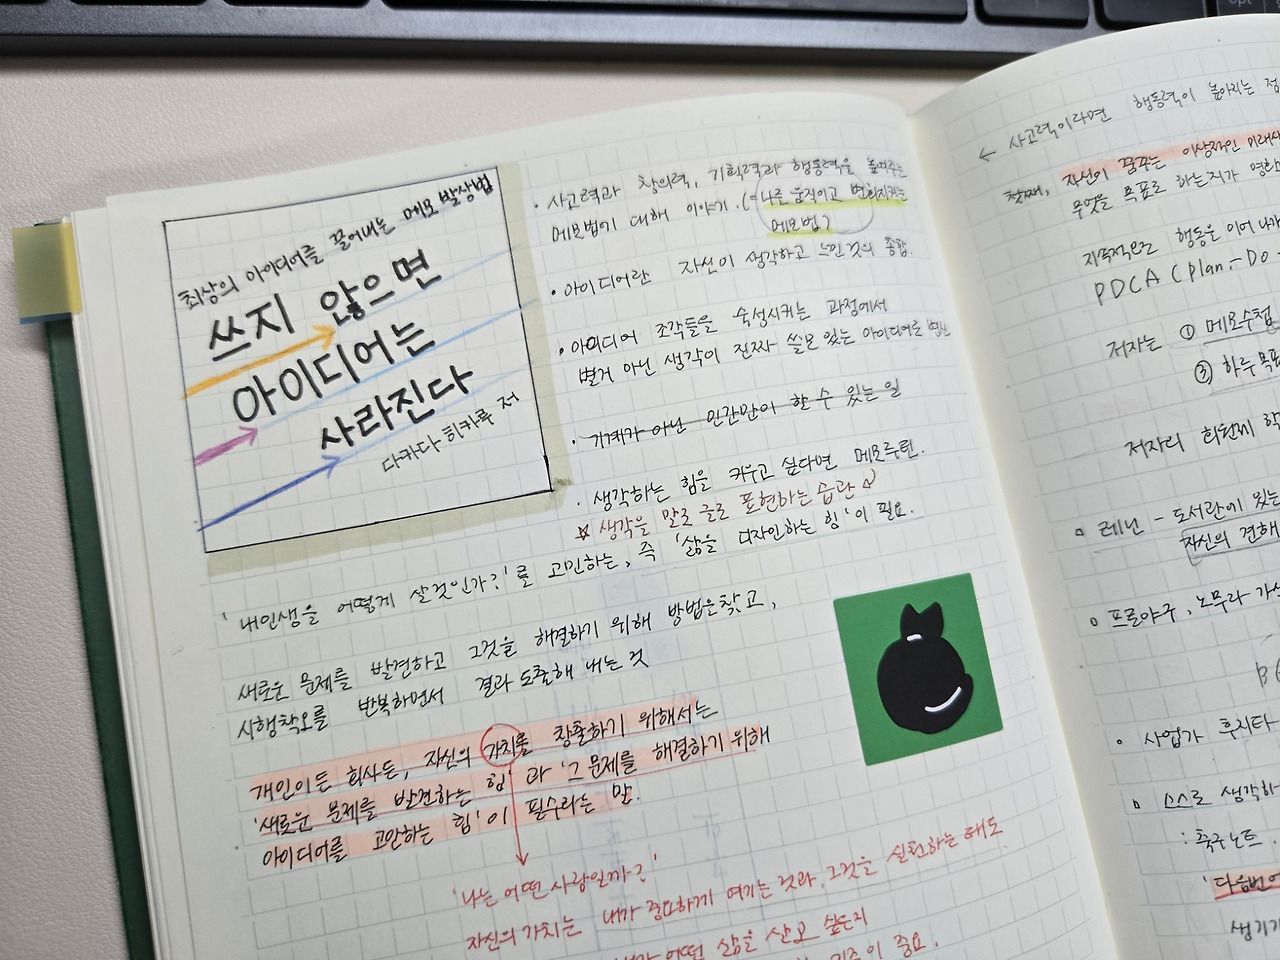 최상의 아이디어를 끌어내는 메모 발상법
쓰지 않으면
아이디어는
사라진다
다카다 히카루 저
· 사고력과 창의력, 기획력과 행동력을 높여주는
메모법에 대해 이야기. (=나를 움직이고 변화시키는
메모법?
· 아이디어란 자신이 생각하고 느낀 것의 종합.
· 아이디어 조각들을 숙성시키는 과정에서
별거 아닌 생각이 진짜 쓸모 있는 아이디어로 변신
· 기계가 아닌 인간만이 할 수 있는 일
· 생각하는 힘을 키우고 싶다면 메모루틴.
☆ 생각을 말로 글로 표현하는 습관
'내 인생을 어떻게 살것인가?'를 고민하는, 즉 '삶을 디자인하는 힘'이 필요.
새로운 문제를 발견하고 그것을 해결하기 위해 방법을 찾고,
시행착오를 반복하면서 결과 도출해 내는 것
개인이든 회사든, 자신의 가치를 창출하기 위해서는
'새로운 문제를 발견하는 힘'과 '그 문제를 해결하기 위해
아이디어를 고안하는 힘'이 필수라는 말.
'나는 어떤 사람일까?'
자신의 가치는 내가 중요하게 여기는 것과, 그것을 실천하는 태도
어떤 삶을 살고 싶은지
이 중요.
← 사고력이라면 행동력이 높아지는 점
첫째, 자신이 꿈꾸는 이상적인 미래
무엇을 목표로 하는지가 영향
지속적으로 행동을 이어 나가
PDCA (Plan - Do -
저자는 ① 메모수첩
③ 하루 목표
저자의 회원제
레닌 - 도서관에 있는
자신의 견해
프로야구, 노무라 가
사업가 후지타
스스로 생각하
: 축구노트.
'다음번에
생기기